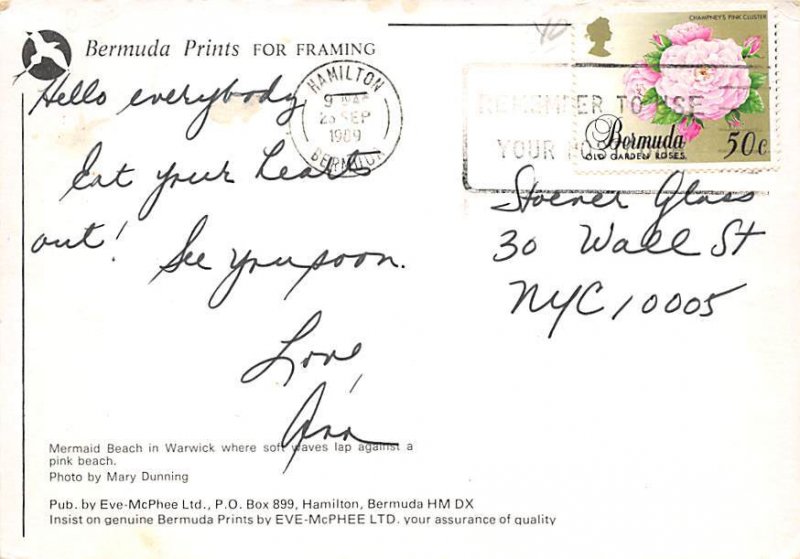 Bermuda Prints FOR FRAMING
Hello everybody
Eat your hearts
out! See you soon.
Love,
Ann
HAMILTON
9
SEP
1989
BERMUDA
REMEMBER TO USE
YOUR
CHAMPNEY'S PINK CLUSTER
Bermuda 50c
OLD GARDEN ROSES
Stoever Glass
30 Wall St
NYC 10005
Mermaid Beach in Warwick where soft waves lap against a
pink beach.
Photo by Mary Dunning
Pub. by Eve-McPhee Ltd., P.O. Box 899, Hamilton, Bermuda HM DX
Insist on genuine Bermuda Prints by EVE-McPHEE LTD. your assurance of quality